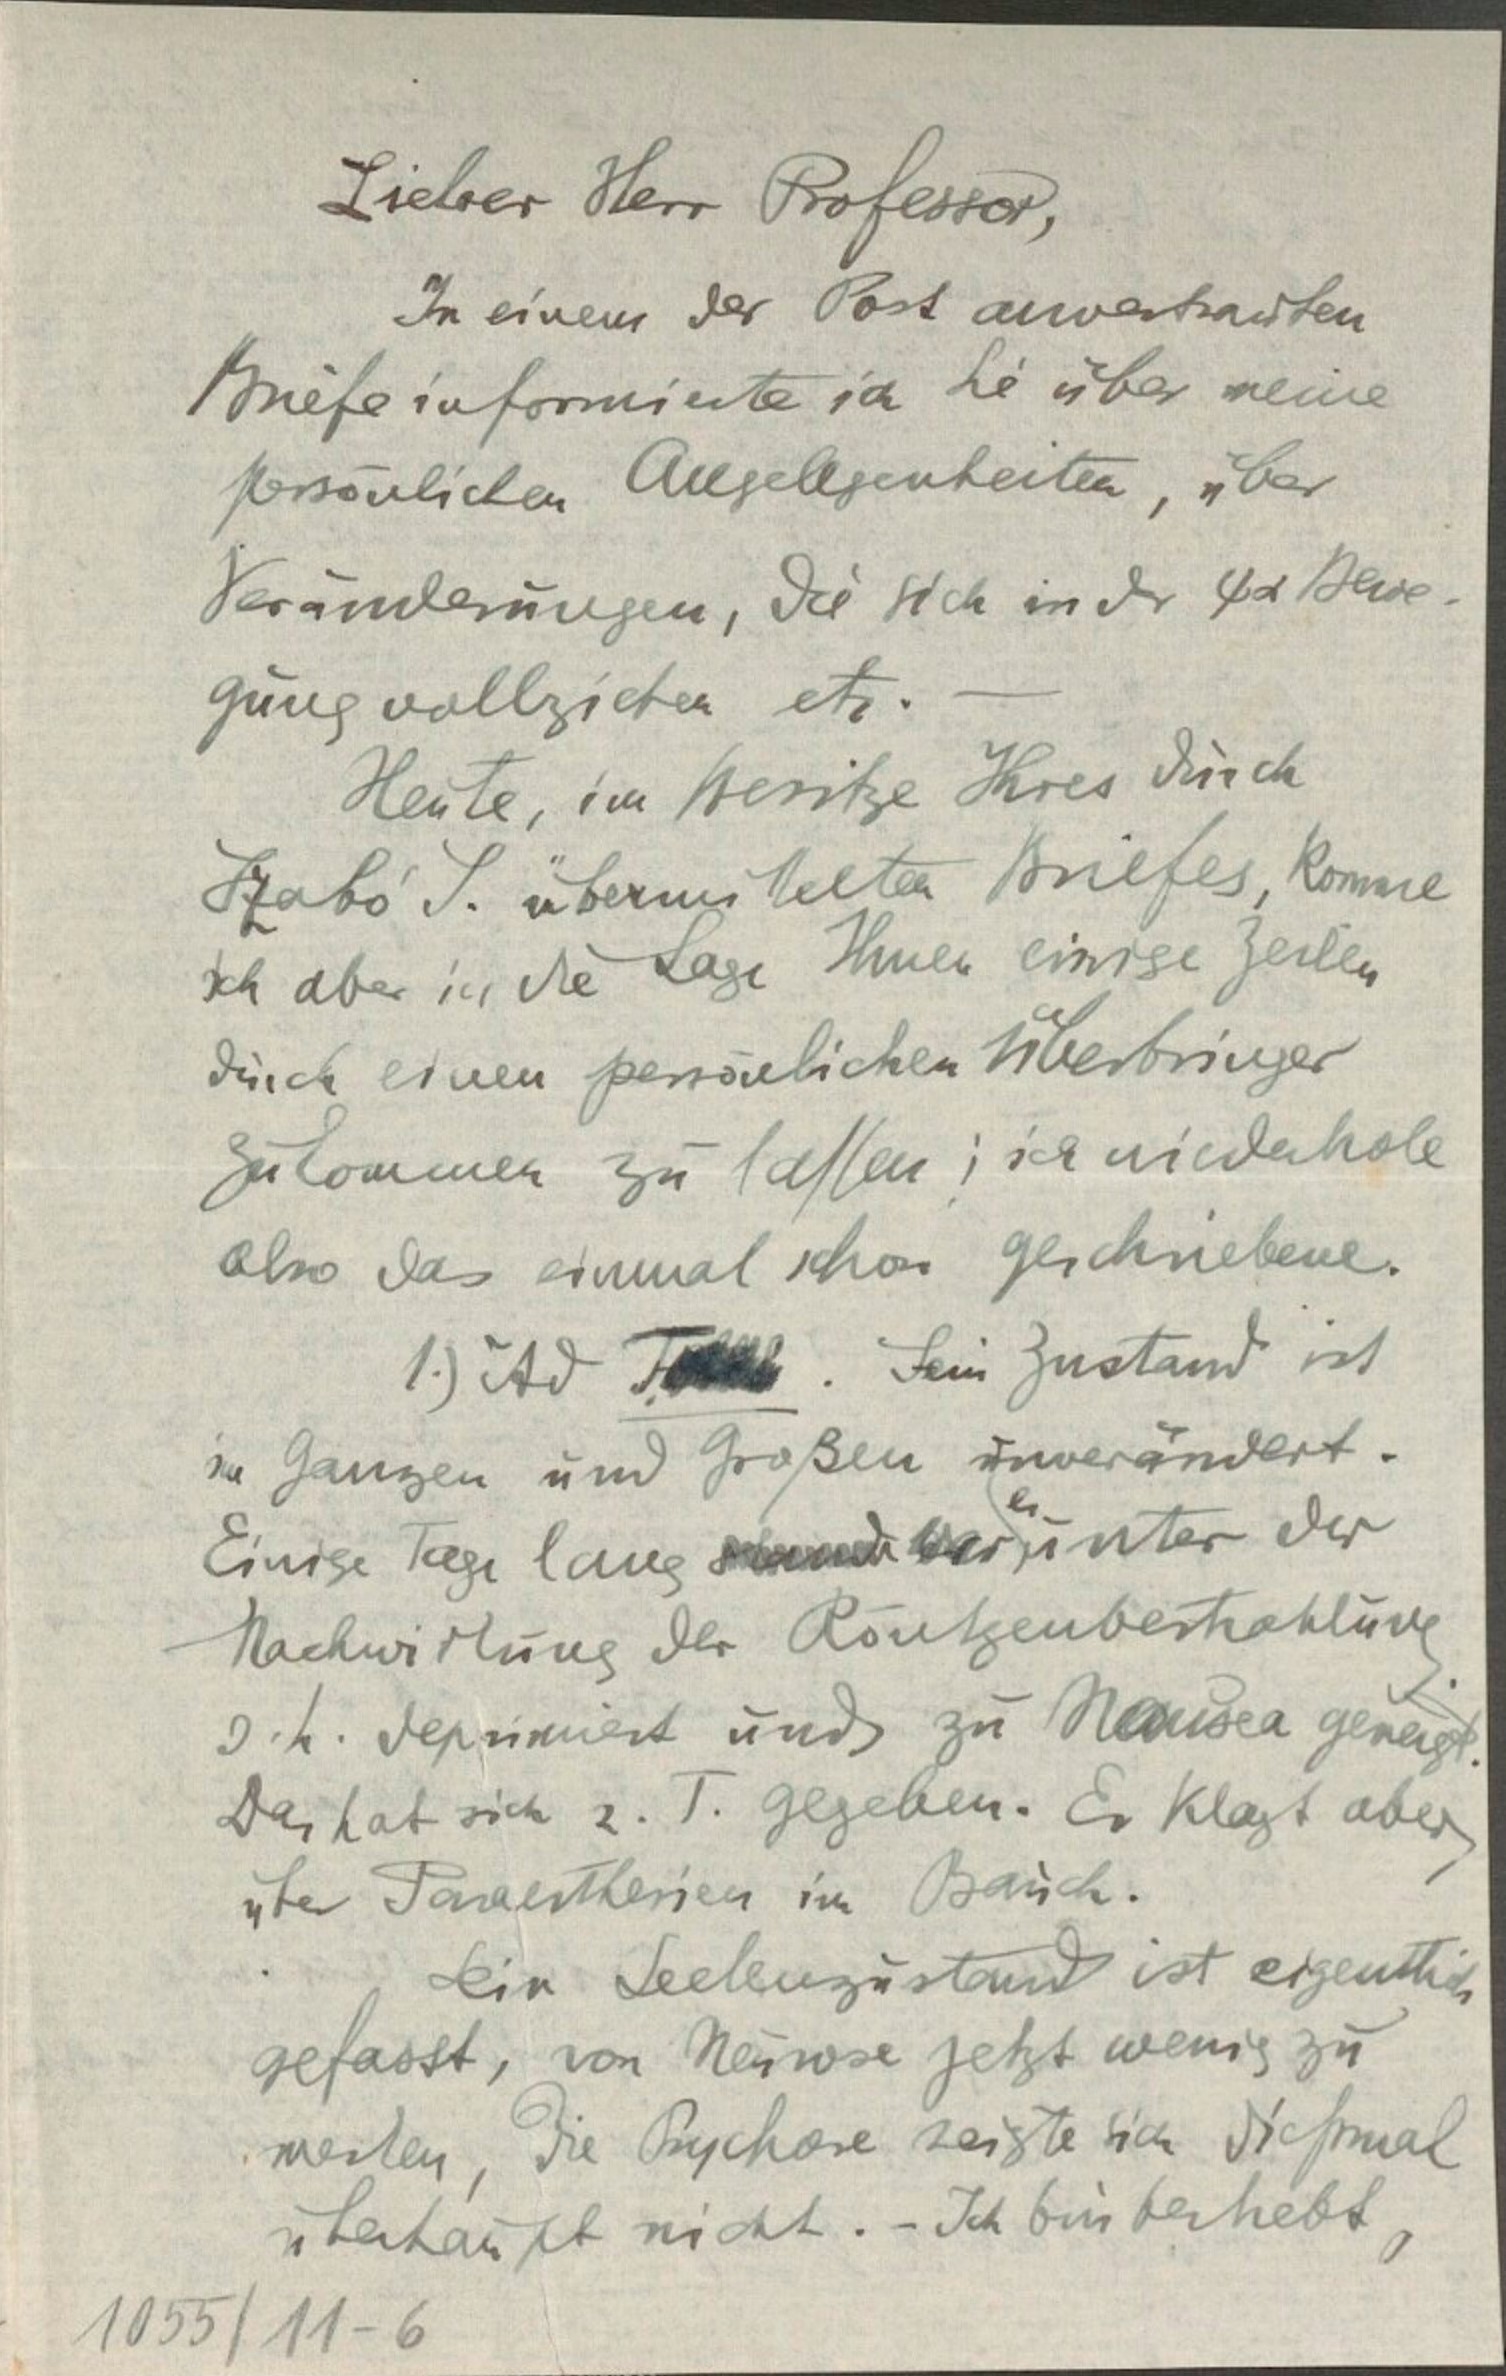 Lieber Herr Professor,
In einem der Post anvertrauten
Briefe informierte ich Sie über meine
persönlichen Angelegenheiten, über
Veränderungen, die sich in der ψα Bewe-
gung vollziehen etc. —
Heute, im Besitze Ihres durch
Szabó S. übermittelten Briefes, komme
ich aber in die Lage Ihnen einige Zeilen
durch einen persönlichen Überbringer
zukommen zu lassen; ich wiederhole
also das einmal schon geschriebene.
1.) Ad T. Sein Zustand ist
im Ganzen und Großen unverändert.
Einige Tage lang war er unter der
Nachwirkung der Röntgenbestrahlung
d. h. deprimiert und zu Nausea geneigt.
Das hat sich z. T. gegeben. Er klagt aber
über Paraesthesien im Bauch.
Sein Seelenzustand ist eigentlich
gefasst, von Neurose jetzt wenig zu
merken, die Psychose zeigte sich dießmal
überhaupt nicht. - Ich bin bestrebt,
1055/11-6